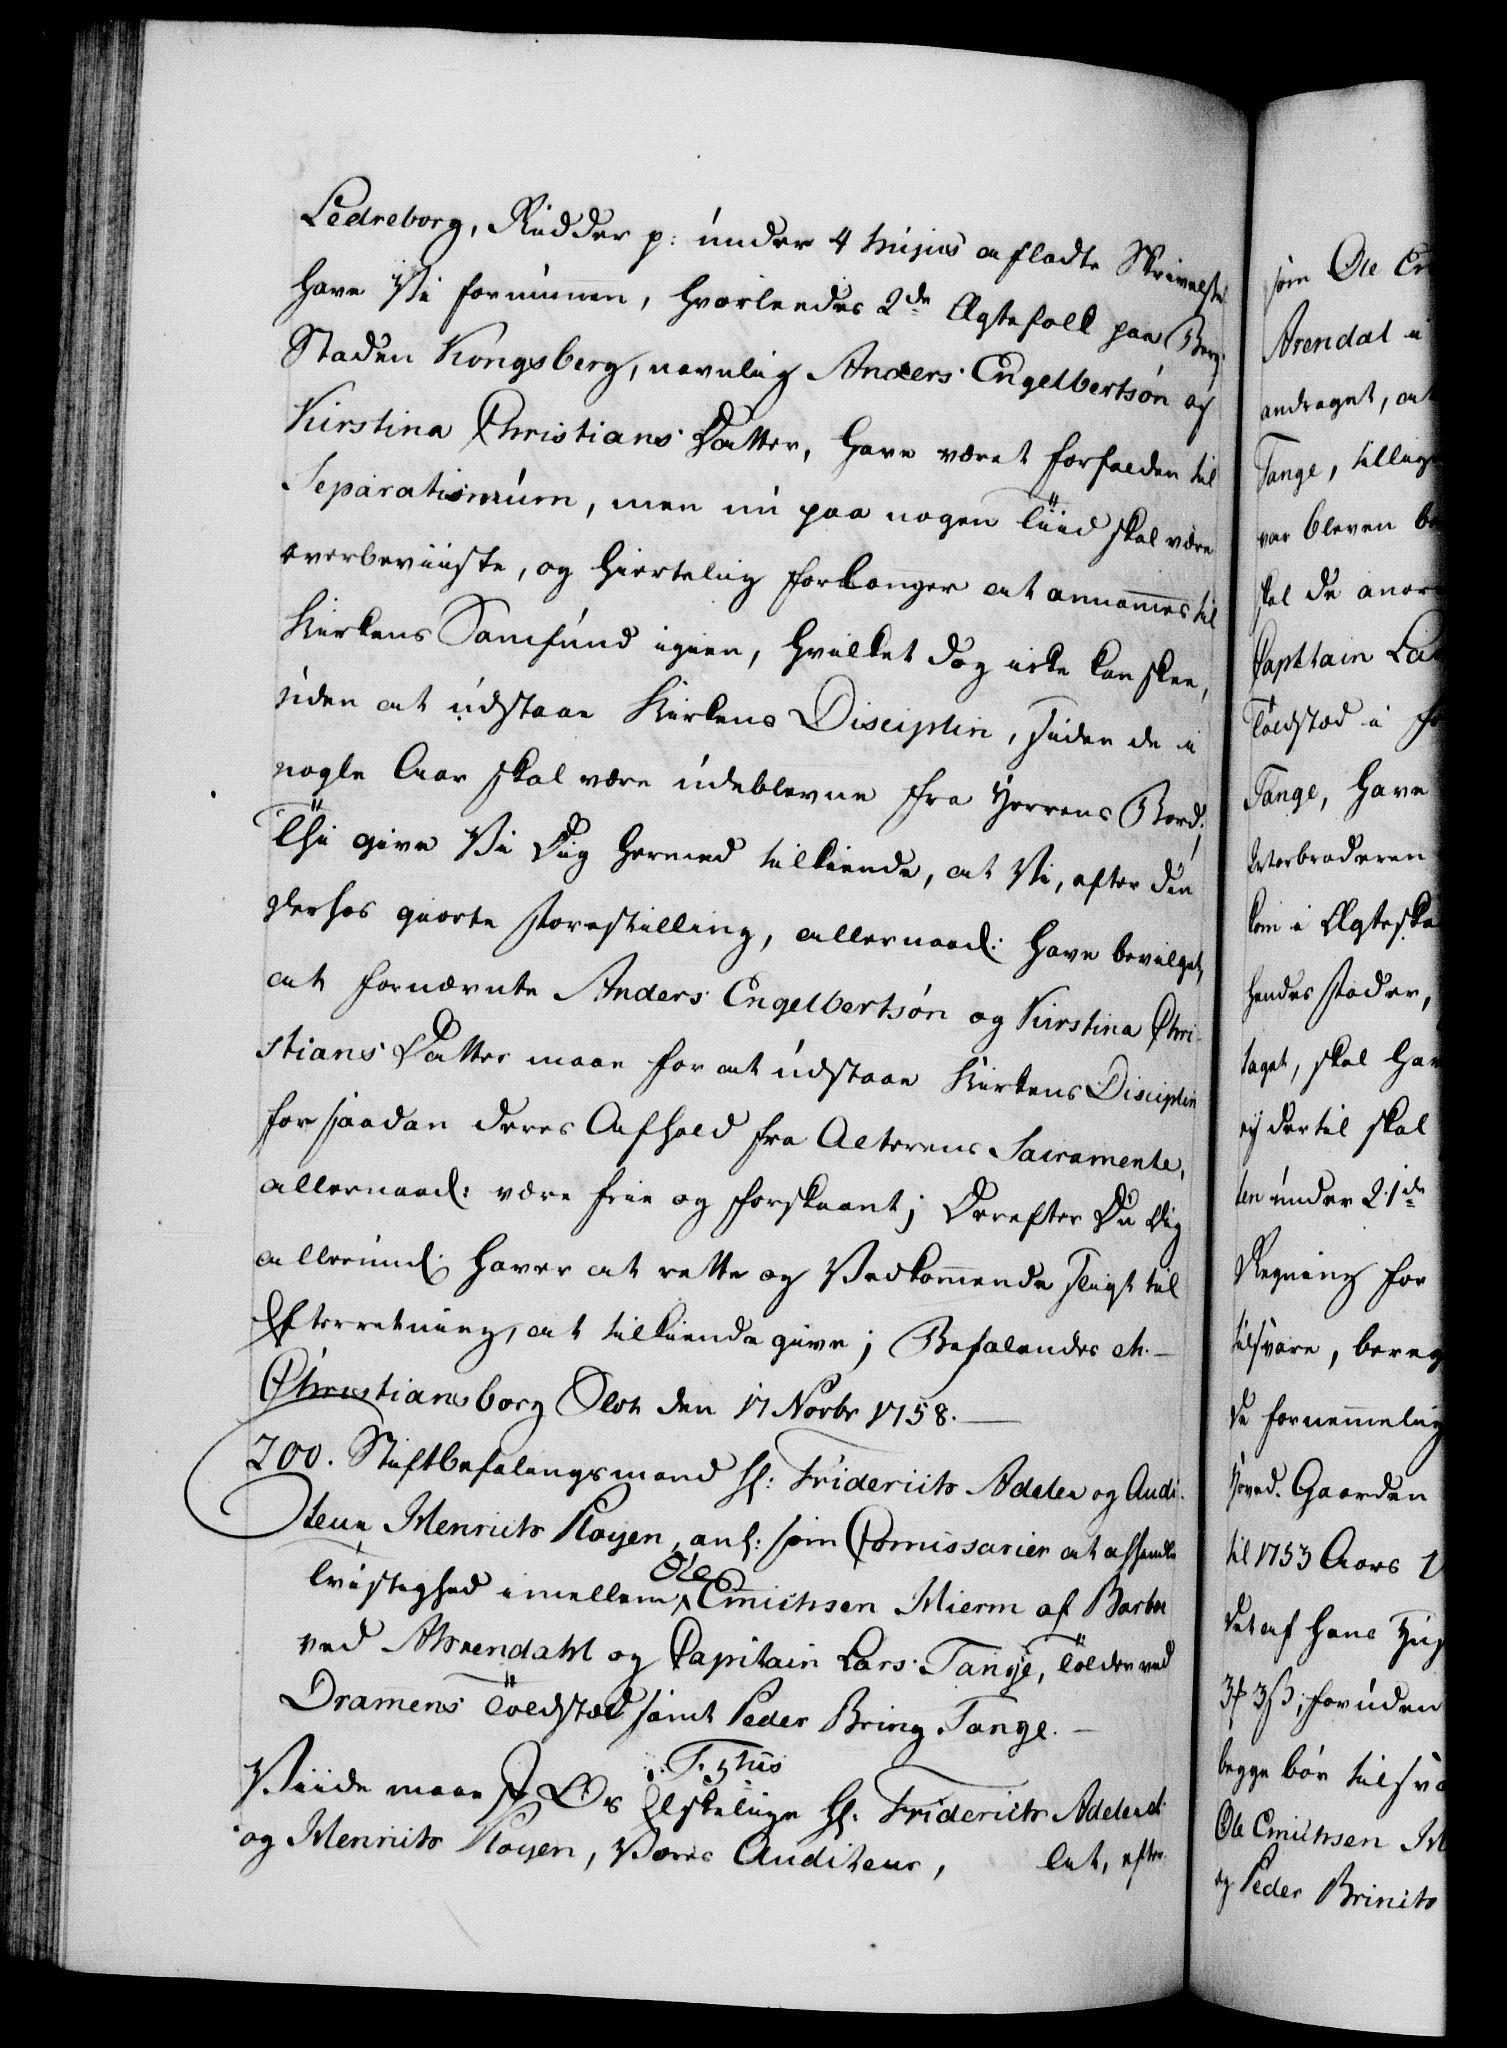 Ledreborg, Ridder p: under 4 hujus afladte Skrivelse
have Vi fornummen, hvorledes 2de Ægtefolk paa Berg-
Staden Kongsberg, navnlig Anders Engelbertsøn og
Kirstina Christians Datter, have været forfalden til
Separatismum, men nu paa nogen Tiid skal være
overbeviiste, og hiertelig forlanger at annammes til
Kirkens Samfund igien, hvilket dog icke kan skee,
uden at udstaae Kirkens Disciplin, siden de i
nogle Aar skal være udeblevne fra Herrens Bord;
Thi give Vi Dig hermed tilkiende, at Vi, efter din
derhos giorte Forestilling, allernaad: have bevilget,
at fornævnte Anders Engelbertsøn og Kirstina Chri-
stians Datter maae for at udstaae Kirkens Disciplin
for saadan deres Afhold fra Alterens Sacramente,
allernaad: være frie og forskaant; Derefter Du Dig
allerund: haver at rette og Vedkommende sligt til
Efterretning, at tilkiende give; Befalendes etc. —
Christiansborg Slot den 17 Novbr 1758. —
200. Stiftbefalingsmand Hr: Friderich Adeler og Audi-
teur Henrich Ployen, anl: som Commissarier at afhandle
Tvistighed imellem Ole Emichsen Mierm af Barboe
ved Ahrendahl og Capitain Lars Tange, Tolder ved
Dramens Toldsted samt Peder Bring Tange. —
F. 5tus
Viide maae I Os Elskelige Hr. Friderich Adeler
og Henrich Ployen, Vores Auditeur, at, efter
som Ole Em
Arendal i
andraget, at
Tange, tillige
var bleven be
skal de anor
Captain La
Toldsted i
Tange, have
kom i Ægteska
hendes Fader,
taget, skal ha
ej dertil skal
ten under 21de
Regning for
tilsvare, bereg
de fornemmelig
hoved-Gaarden
til 1753 Aars
begge bør tilsva
Ole Emichsen M
og Peder Brinch